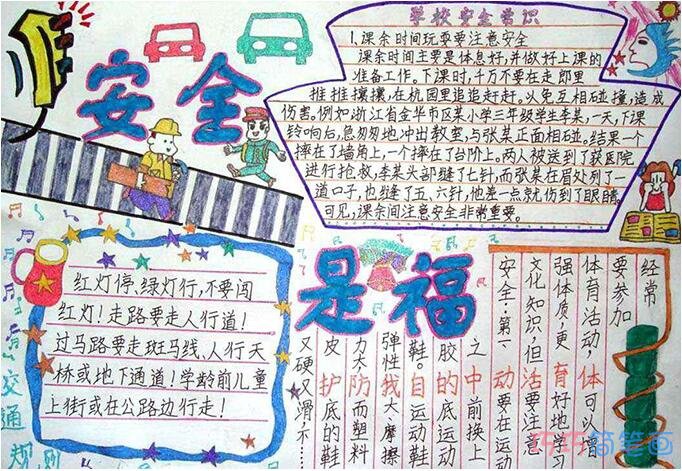 安全
是福
学校安全常识
1.课余时间玩耍要注意安全
课余时间主要是休息好,并做好上课的
准备工作。下课时,千万不要在走郎里
推推攘攘,在校园里追追赶赶。以免互相碰撞,造成
伤害。例如浙江省金华市区某小学三年级学生李某,一天,下课
铃响后,急匆匆地冲出教室,与张某正面相碰。结果一个
摔在了墙角上,一个摔在了台阶上。两人被送到了获医院
进行抢救,李某头部缝了七针,而张某在眉处列了一
道口子,也缝了五、六针,他差一点就伤到了眼睛。
可见,课余间注意安全非常重要。
红灯停、绿灯行,不要闯
红灯!走路要走人行道!
过马路要走斑马线、人行天
桥或地下通道!学龄前儿童
上街或在公路边行走!
交通规则
经常
要参加
体育活动,体可以增
强体质,更育好地学习
文化知识,但活要注意
安全·第一动要在运动
之中前换上
胶的底运动
鞋。自运动鞋
弹性找大、摩擦
力大防而塑料
皮护底的鞋
又硬又滑,不
巧巧简笔画